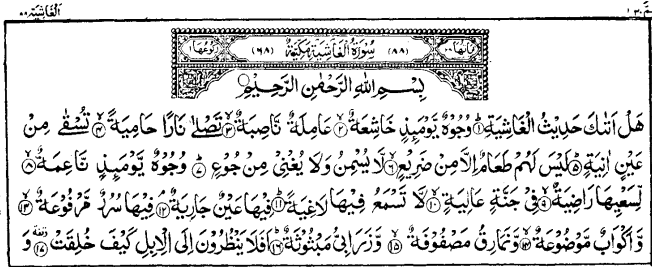 الغاشية ٨٨
(٨٨) سُوْرَةُ الْغَاشِيَةِ مَكِّيَّةٌ (٦٨) رُكُوْعُهَا ١
بِسْمِ اللّٰهِ الرَّحْمٰنِ الرَّحِيْمِ
هَلْ اَتٰىكَ حَدِيْثُ الْغَاشِيَةِ ۝١ وُجُوْهٌ يَّوْمَئِذٍ خَاشِعَةٌ ۝٢ عَامِلَةٌ نَّاصِبَةٌ ۝٣ تَصْلٰى نَارًا حَامِيَةً ۝٤ تُسْقٰى مِنْ
عَيْنٍ اٰنِيَةٍ ۝٥ لَيْسَ لَهُمْ طَعَامٌ اِلَّا مِنْ ضَرِيْعٍ ۝٦ لَّا يُسْمِنُ وَلَا يُغْنِيْ مِنْ جُوْعٍ ۝٧ وُجُوْهٌ يَّوْمَئِذٍ نَّاعِمَةٌ ۝٨
لِّسَعْيِهَا رَاضِيَةٌ ۝٩ فِيْ جَنَّةٍ عَالِيَةٍ ۝١٠ لَّا تَسْمَعُ فِيْهَا لَاغِيَةً ۝١١ فِيْهَا عَيْنٌ جَارِيَةٌ ۝١٢ فِيْهَا سُرُرٌ مَّرْفُوْعَةٌ ۝١٣
وَّاَكْوَابٌ مَّوْضُوْعَةٌ ۝١٤ وَّنَمَارِقُ مَصْفُوْفَةٌ ۝١٥ وَّزَرَابِيُّ مَبْثُوْثَةٌ ۝١٦ اَفَلَا يَنْظُرُوْنَ اِلَى الْاِبِلِ كَيْفَ خُلِقَتْ ۝١٧ وَ